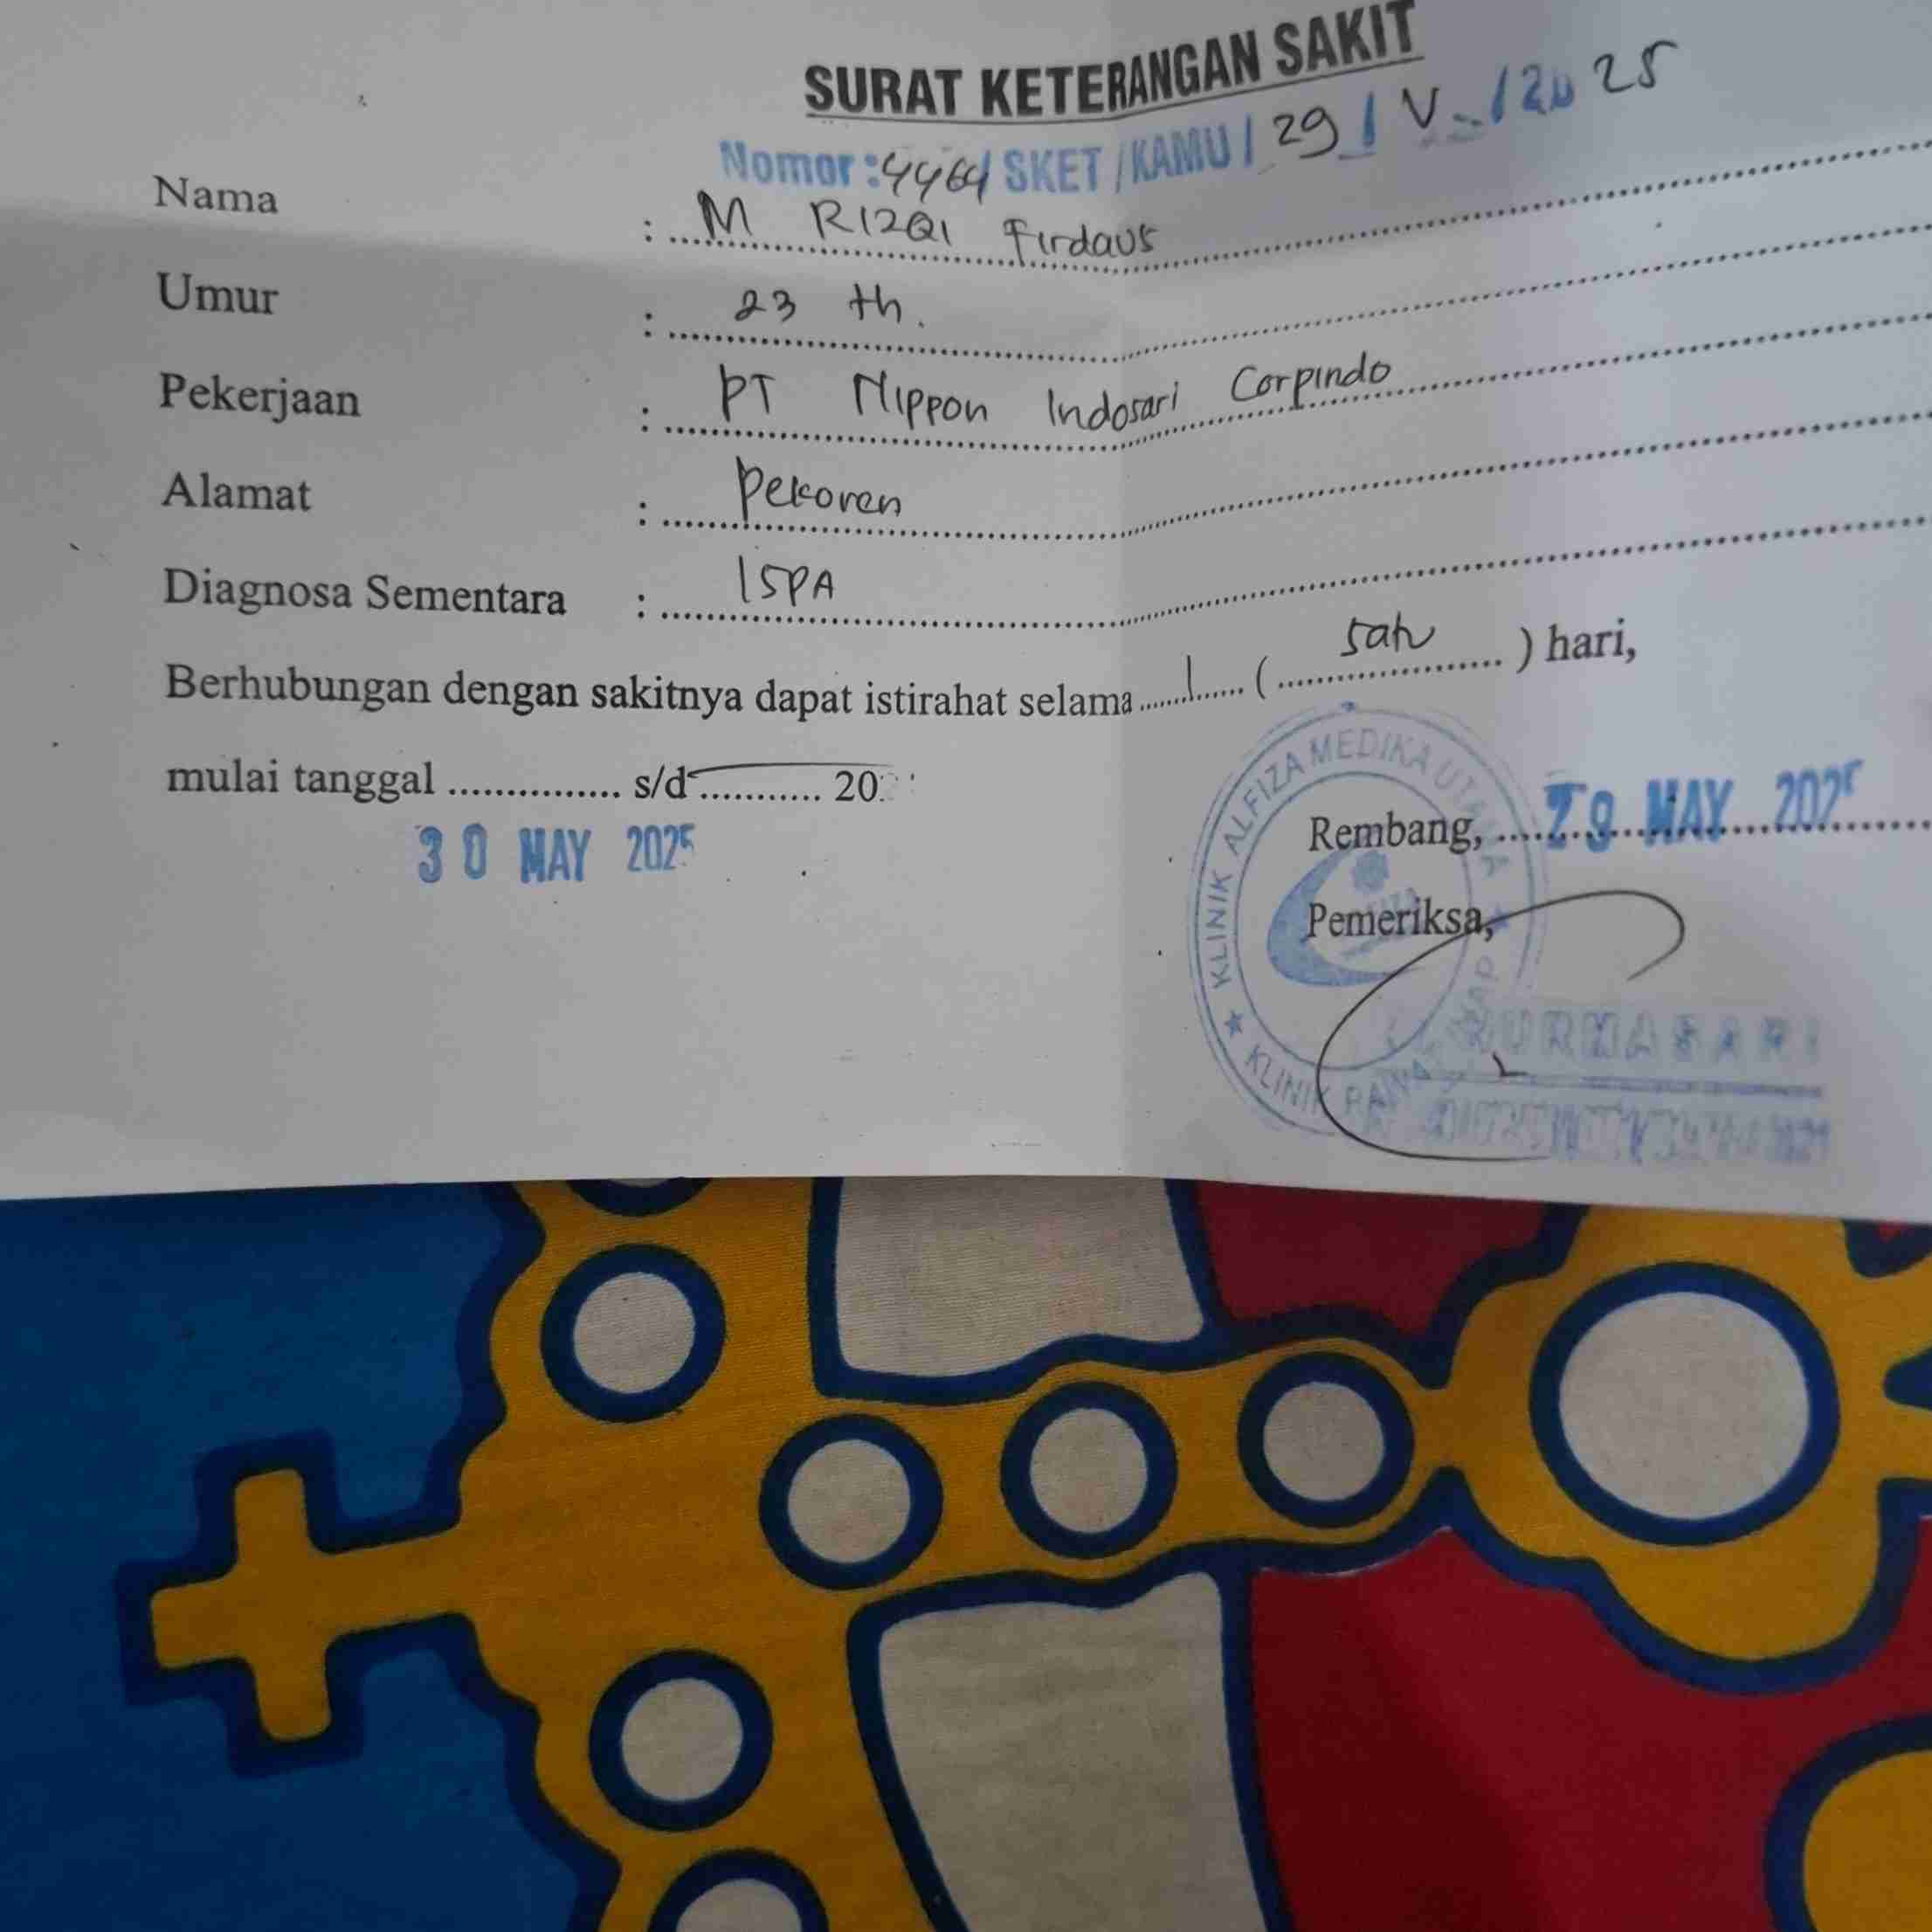 SURAT KETERANGAN SAKIT
Nomor : 4464/ SKET / KAMU / 29 / V / 20 25
Nama : M RIZQI Firdaus
Umur : 23 th.
Pekerjaan : PT Nippon Indosari Corpindo
Alamat : Pekoren
Diagnosa Sementara : ISPA
Berhubungan dengan sakitnya dapat istirahat selama 1 ( satu ) hari,
mulai tanggal ............... s/d ........... 20
30 MAY 2025
Rembang, 29 MAY 2025
Pemeriksa,
KLINIK ALFIZA MEDIKA UTAMA
KLINIK RAWAT
NURMASARI